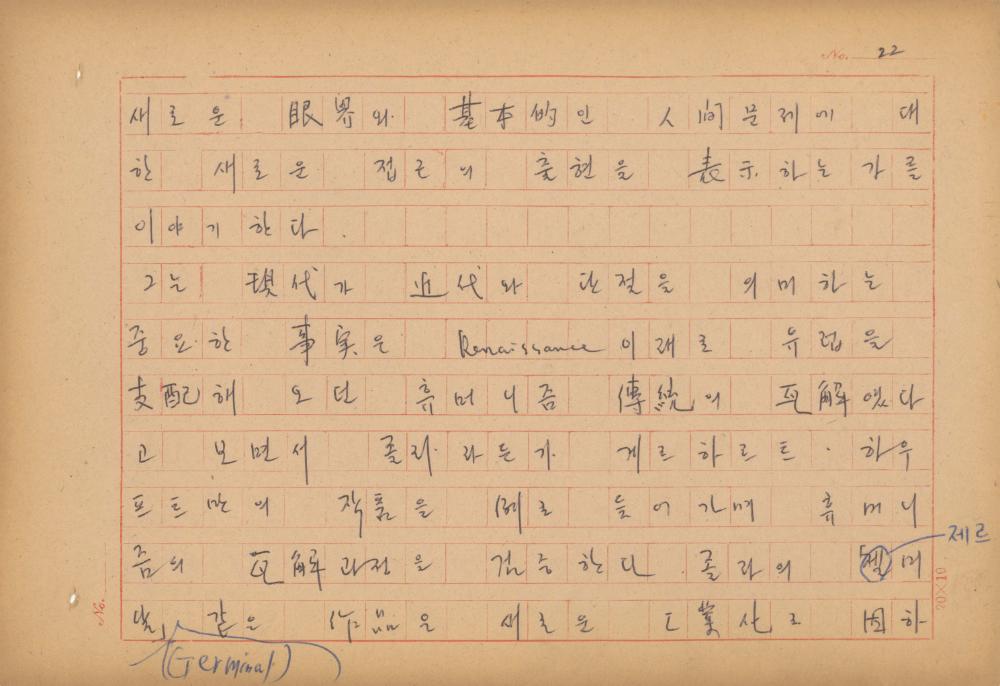 No. 22
새로운 眼界와 基本的인 人間문제에 대
한 새로운 접근의 출현을 表示하는가를
이야기한다.
그는 現代가 近代와 단절을 의미하는
중요한 事実은 Renaissance 이래로 유럽을
支配해 오던 휴머니즘 傳統의 瓦解였다
고 보면서 졸라라든가 게르하르트·하우
프트만의 작품을 例로 들어가며 휴머니
즘의 瓦解과정을 검증한다. 졸라의 「젤미
제르
날」 같은 作品은 새로운 工業化로 因하
(Germinal)
No.
20×10